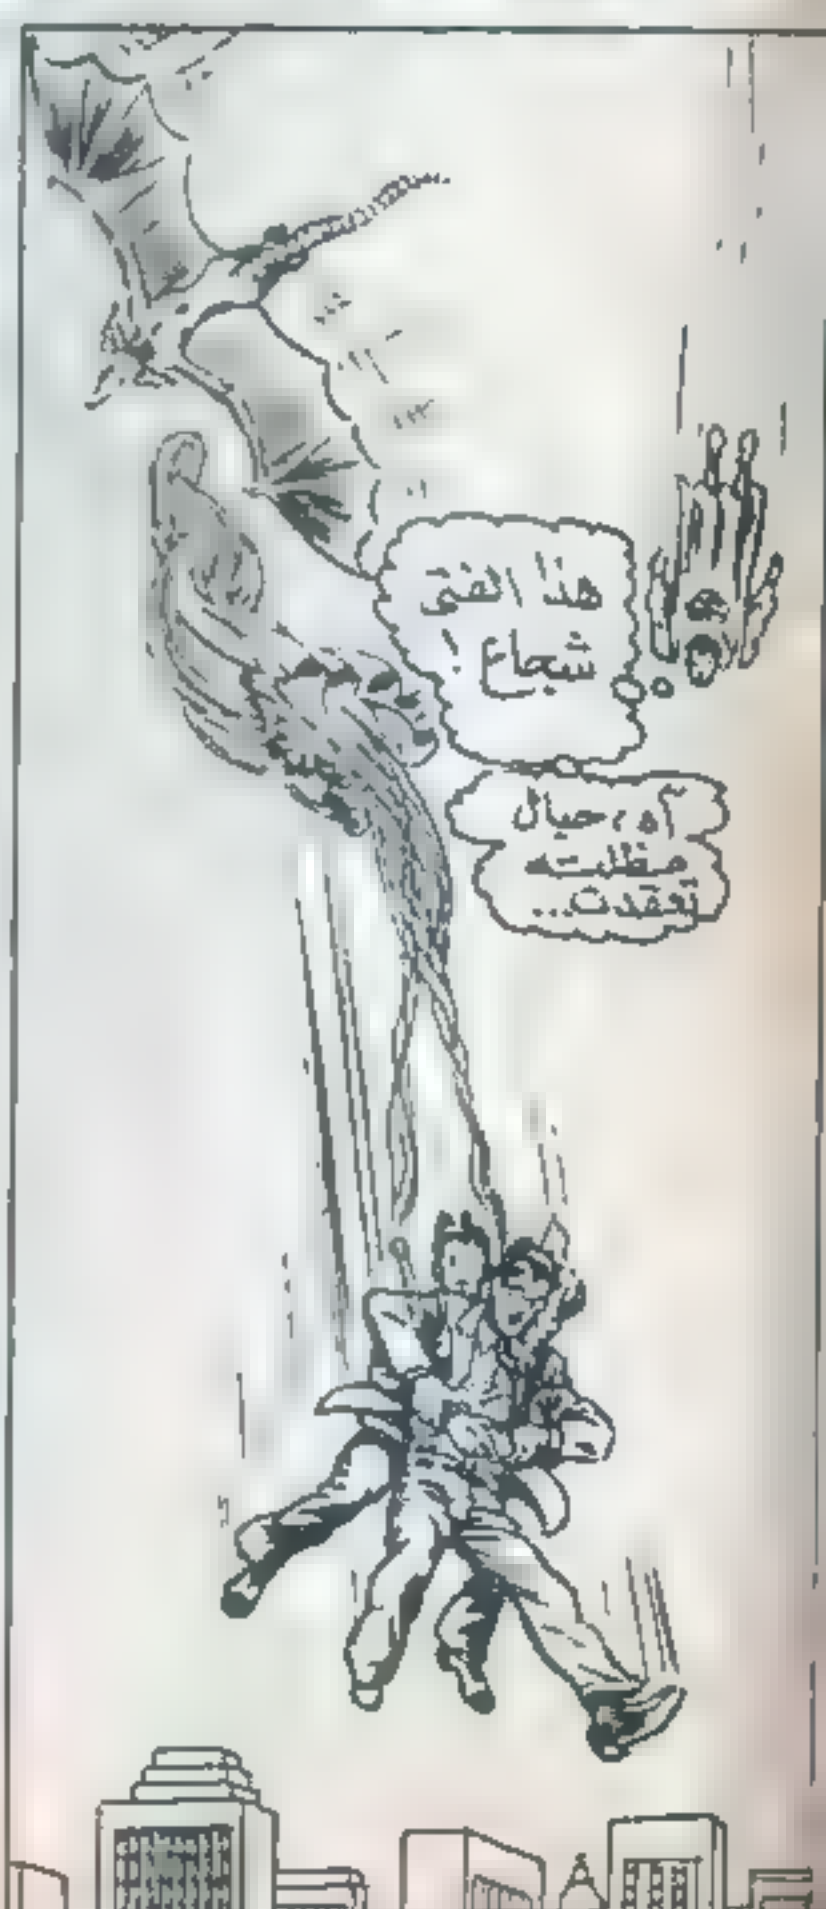 هذا الفتى
شجاع !
آه، حبال
مظلته
تعقدت...